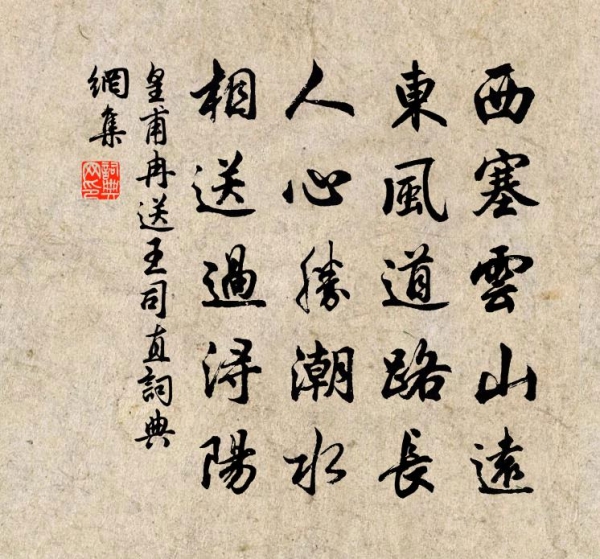 西塞雲山遠
東風道路長
人心勝潮水
相送過潯陽
皇甫冉送王司直詞典
網集
詞典
網印